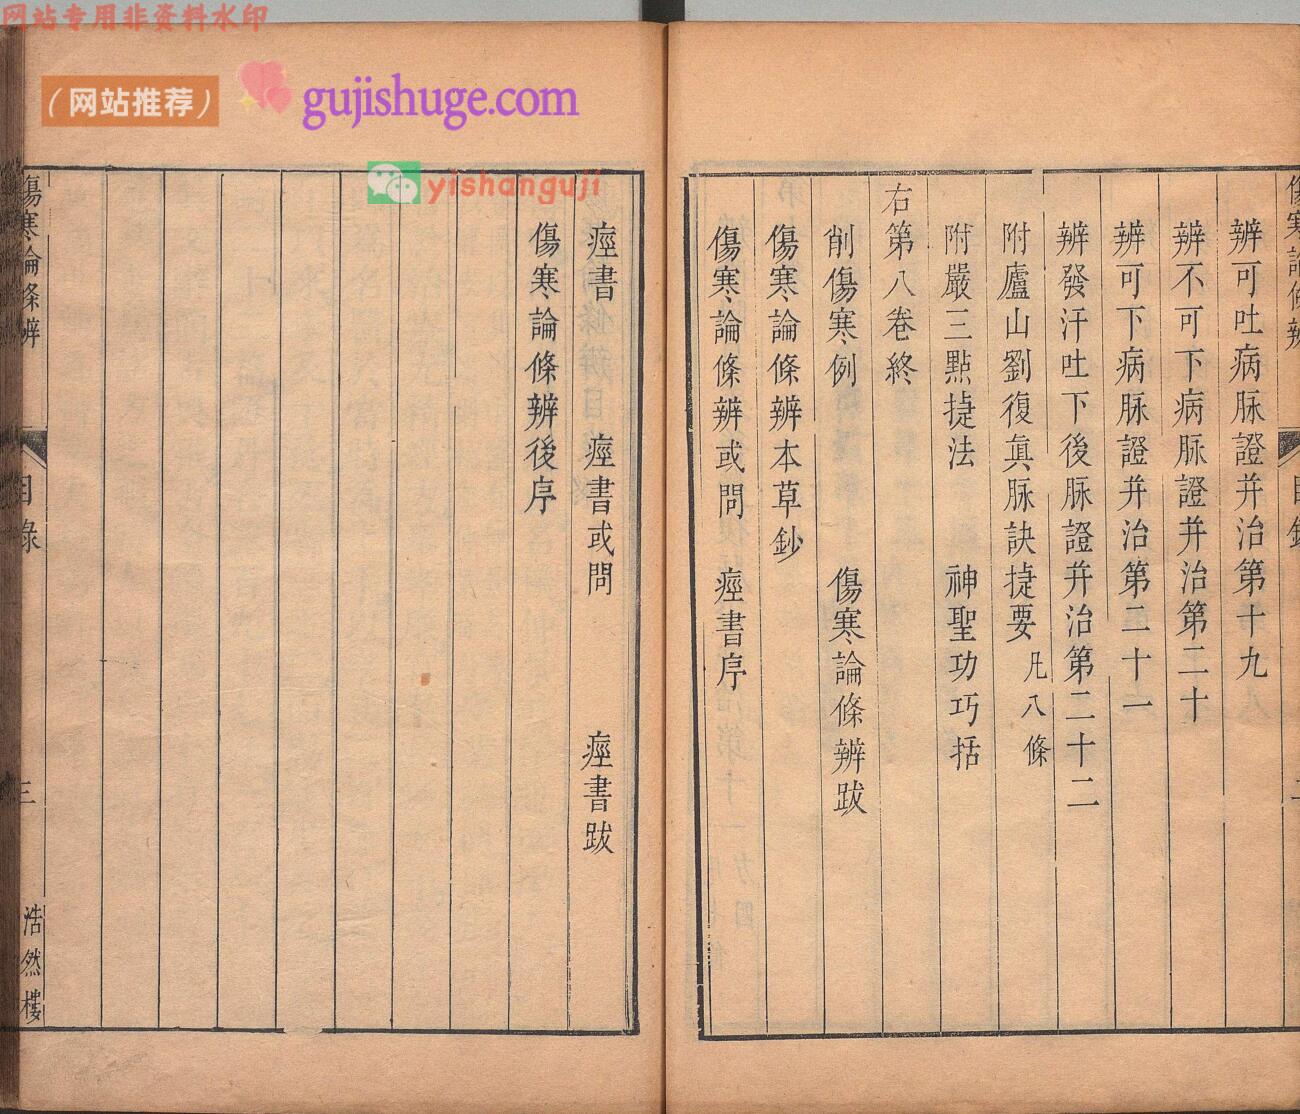 网站专用非资料水印
（网站推荐）
gujishuge.com
yishanguji
辨可吐病脉證并治第十九
辨不可下病脉證并治第二十
辨可下病脉證并治第二十一
辨發汗吐下後脉證并治第二十二
附廬山劉復眞脉訣捷要凡八條
附嚴三點捷法 神聖功巧括
右第八卷終
削傷寒例 傷寒論條辨跋
傷寒論條辨本草鈔
傷寒論條辨或問 痙書序
痙書 痙書或問 痙書跋
傷寒論條辨後序
傷寒論條辨
目錄
三
浩然樓